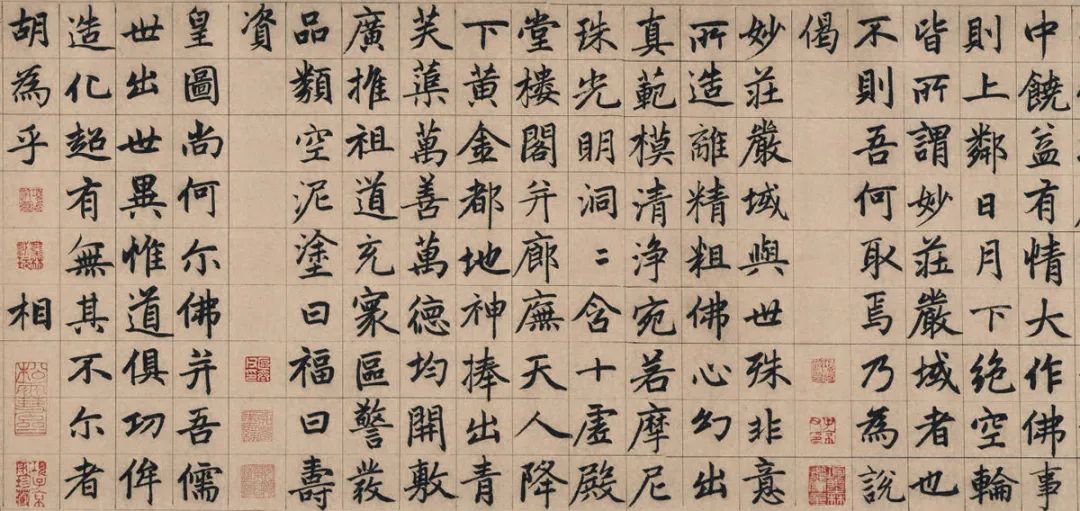 中饒益有情大作佛事
則上鄰日月下絕空輪
皆所謂妙莊嚴域者也
不則吾何取焉乃為說
偈
妙莊嚴域與世殊非意
所造離精粗佛心幻出
真範模清淨宛若摩尼
珠光明洞〻含十虛殿
堂樓閣并廊廡天人降
下黃金都地神捧出青
芙蕖萬善萬德均開敷
廣推祖道充寰區警發
品類空泥塗曰福曰壽
資
皇圖尚何尔佛并吾儒
世出世異惟道俱功侔
造化超有無其不尔者
胡為乎 相